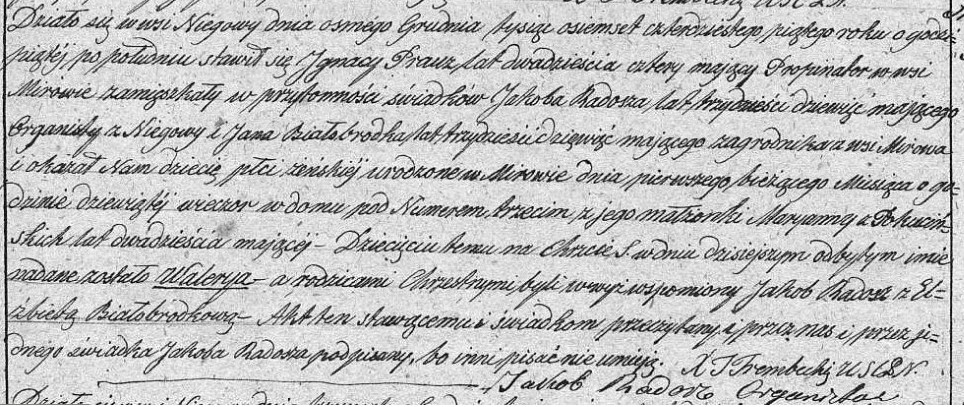 Działo się w wsi Niegowy dnia osmego Grudnia tysiąc osiemset czterdziestego piątego roku o godzi-
piątéj po południu stawił się Jgnacy Prauz lat dwadzieścia cztery mający Propinator w wsi
Mirowie zamięszkały w przytomności świadków Jakoba Radosza lat trzydzieści dziewięć mającego
Organisty z Niegowy i Jana Białobrodka lat trzydzieści dziewięć mającego zagrodnika z wsi Mirowa
i okazał Nam dziecię płci żeńskiéj urodzone w Mirowie dnia pierwszego bieżącego Miesiąca o go-
dzinie dziewiątéj wieczor w domu pod Numerem trzecim z jego małżonki Maryanny z Pokuciń-
skich lat dwadzieścia mającéj – Dziecięciu temu na Chrzcie S. w dniu dzisiejszym odbytym imie
nadane zostało Walerya – a rodzicami Chrzestnymi byli wwyż wspomiony Jakob Radosz z El-
żbietą Białobrodkową – Akt ten stawącemu i świadkom przeczytany i przez nas i przez je-
dnego świadka Jakoba Radosza podpisany, bo inni pisać nie umieją. X J Trembecki U S C P N.
Jakob Radosz Organista
Działo się w wsi